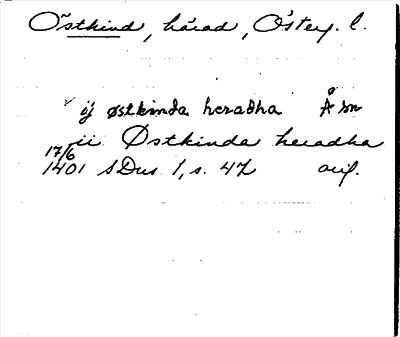 Östkind, härad, Österg. l.
ij østkinda heradha Å sn
ii Østkinda heradha
17/6
1401 SDns 1, s. 42 orig.